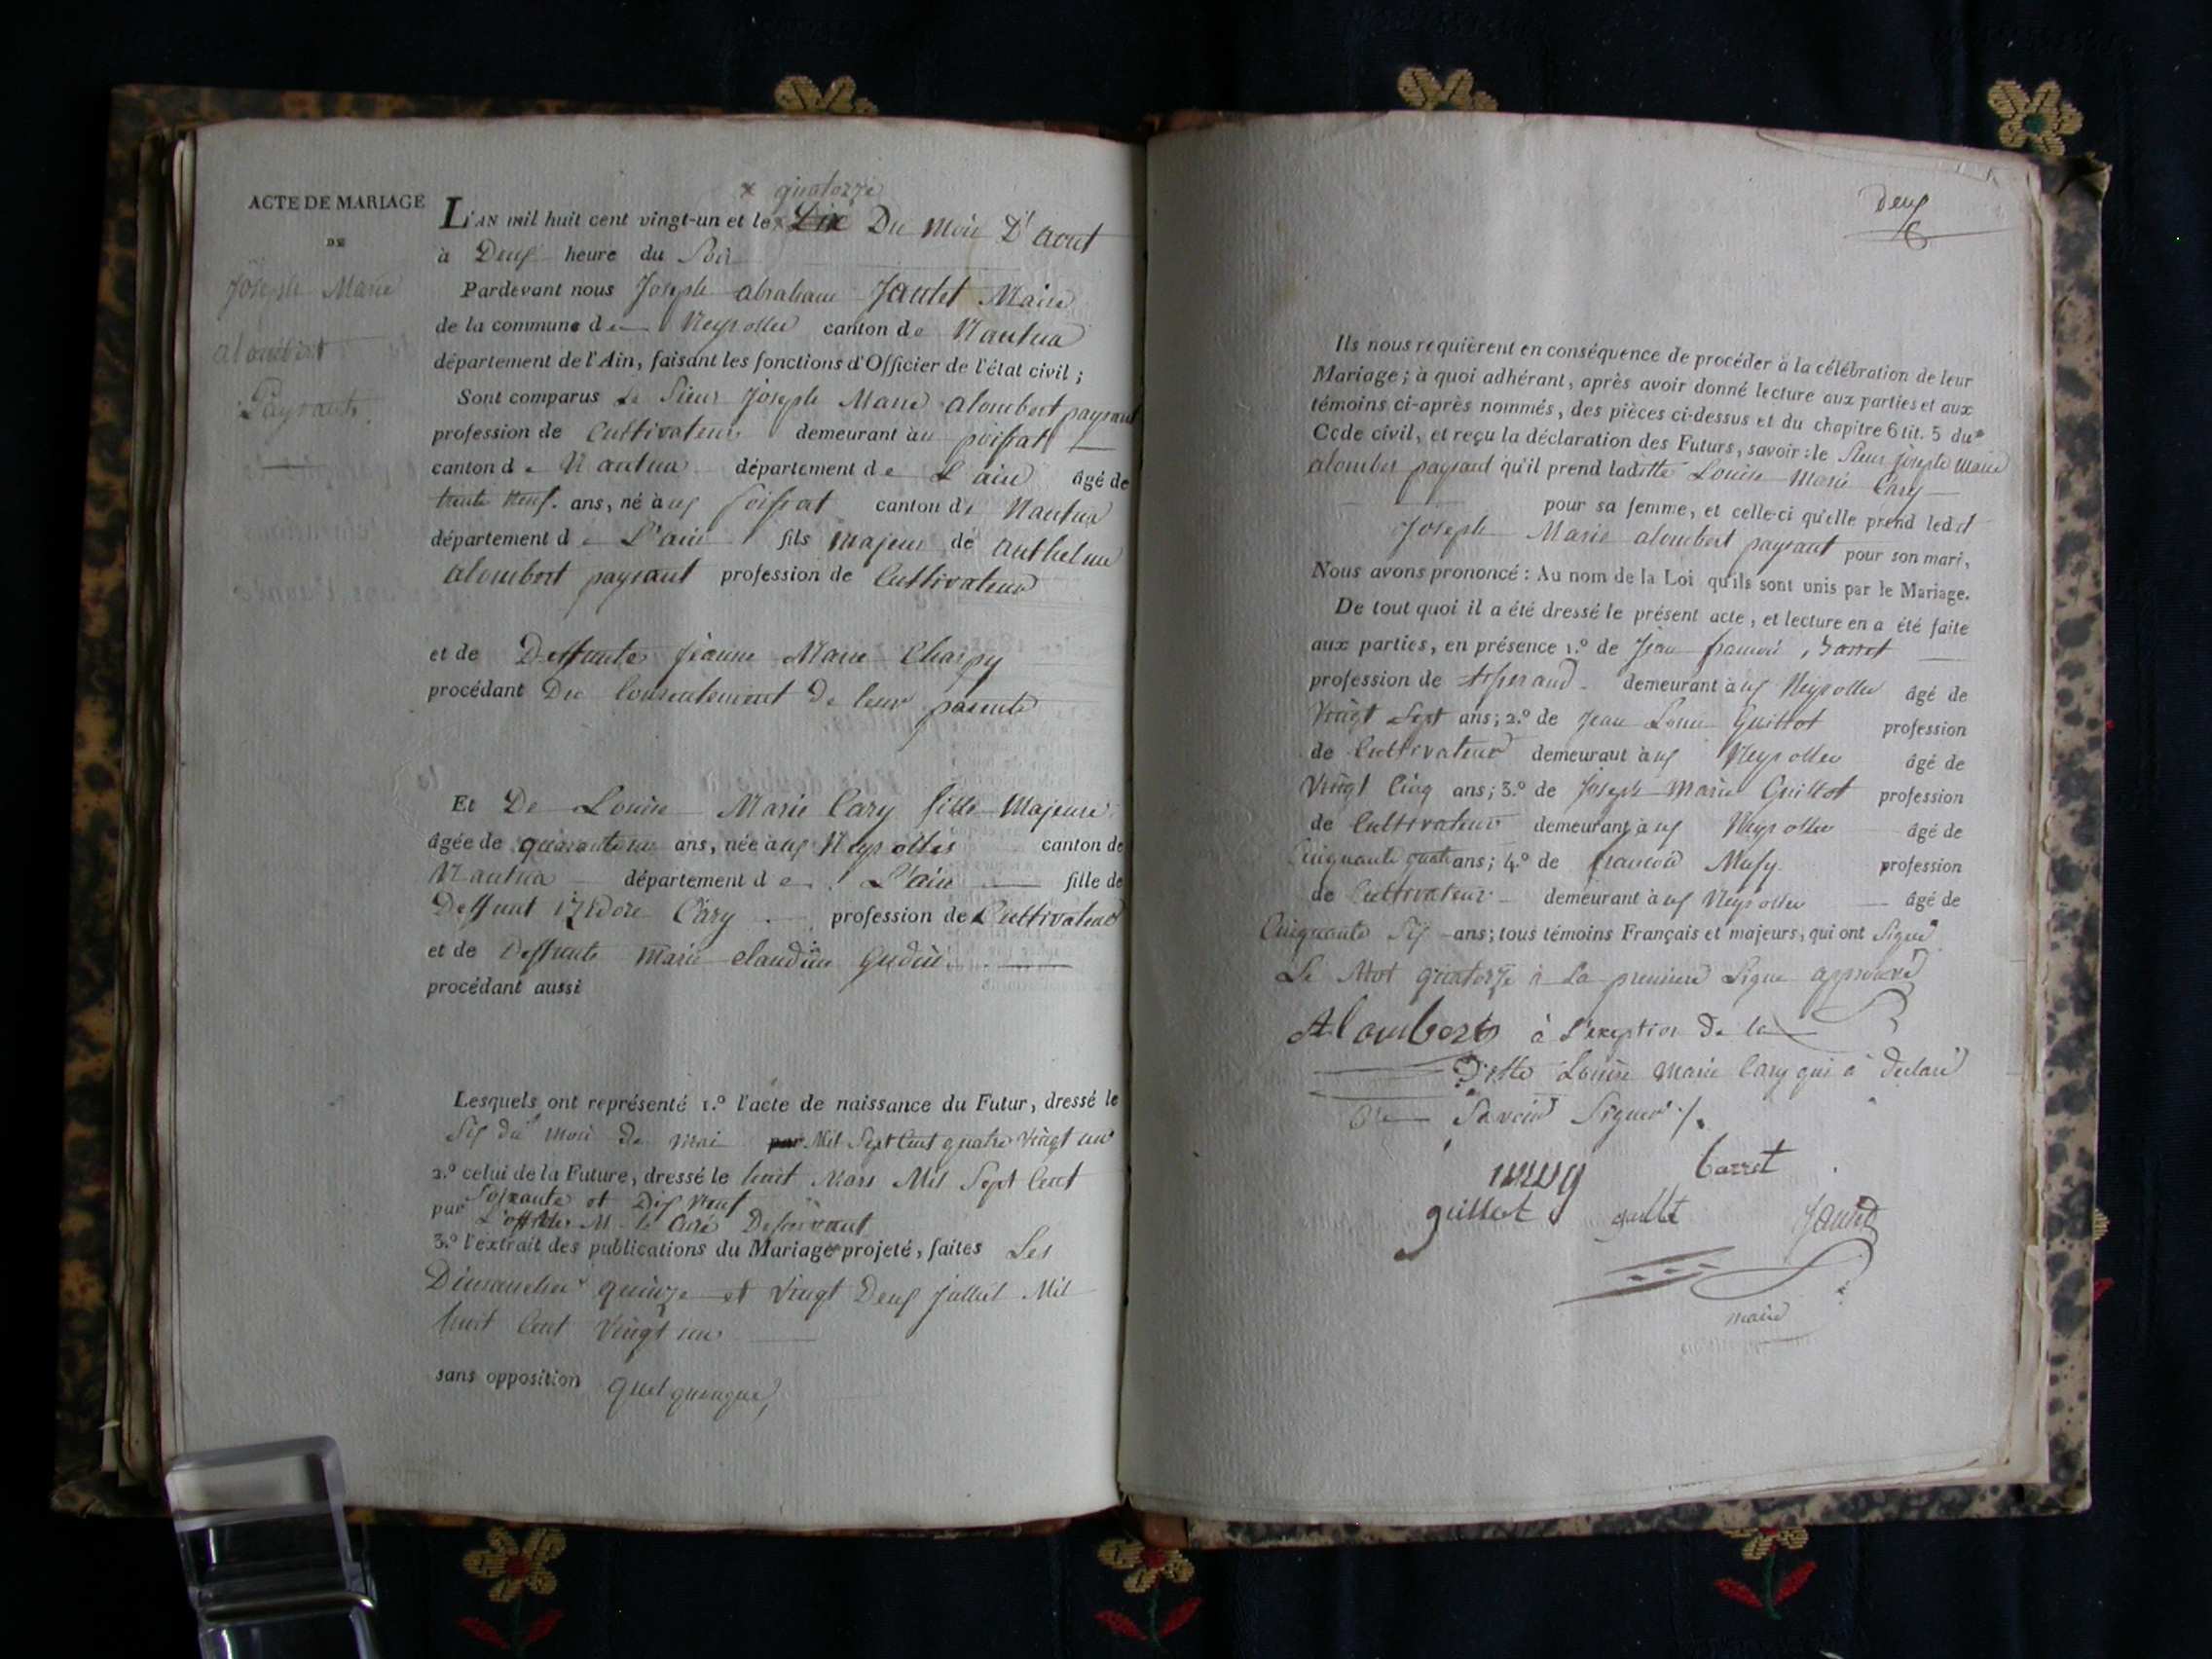 ACTE DE MARIAGE
DE
Joseph Marie
alombert
Paysant.
x quatorze
L'AN mil huit cent vingt-un et le x Dix Du Mois D'aout
à Deux heure du Soir
Pardevant nous Joseph abraham Jantet Maire
de la commune de Neyrolles canton de Nantua
département de l'Ain, faisant les fonctions d'Officier de l'état civil ;
Sont comparus Le Sieur Joseph Marie alombert paysant
profession de Cultivateur demeurant au poissat
canton de Nantua département de L'ain âgé de
trente neuf ans, né à canton de Nantua
département de L'ain fils Majeur de anthelme
alombert paysant profession de Cultivateur
et de Deffunte jeanne Marie Charpy
procédant Du Consentement de leur parents
Et De Louise Marie Cary fille Majeure
âgée de ans, née aux Neyrolles canton de
Nantua département de L'ain fille de
Deffunt izidore Cary profession de Cultivateur
et de Deffunte Marie claudine
procédant aussi
Lesquels ont représenté 1.º l'acte de naissance du Futur, dressé le
Six du mois de mai par Mil Sept Cent quatre vingt un
2.º celui de la Future, dressé le huit Mars Mil Sept Cent
Soixante et Dix Neuf
par M. le Curé Desservant
3.º l'extrait des publications du Mariage projeté, faites Les
Dimanches quinze et vingt Deux juillet Mil
huit Cent vingt un
sans opposition quelquonque,
Deux
Ils nous requièrent en conséquence de procéder à la célébration de leur
Mariage ; à quoi adhérant, après avoir donné lecture aux parties et aux
témoins ci-après nommés, des pièces ci-dessus et du chapitre 6 tit. 5 du
Code civil, et reçu la déclaration des Futurs, savoir : le Sieur Joseph Marie
alomber paysant qu'il prend laditte Louise Marie Cary
pour sa femme, et celle-ci qu'elle prend ledit
Joseph Marie alombert paysant pour son mari,
Nous avons prononcé : Au nom de la Loi qu'ils sont unis par le Mariage.
De tout quoi il a été dressé le présent acte, et lecture en a été faite
aux parties, en présence 1.º de Jean francois Barret
profession de demeurant aux Neyrolles âgé de
Vingt Sept ans ; 2.º de Jean Louis Guillot profession
de Cultivateur demeurant aux Neyrolles âgé de
Vingt Cinq ans ; 3.º de Joseph Marie Guillot profession
de Cultivateur demeurant aux Neyrolles âgé de
Cinquante quatre ans ; 4.º de francois profession
de Cultivateur demeurant aux Neyrolles âgé de
Cinquante Six ans ; tous témoins Français et majeurs, qui ont Signé
Le Mot quatorze à La premiere Ligne approuvé
Alombert à L'exeption de la
Ditte Louise Marie Cary qui à declaré
Ne Savoir Signer
barret
guillot Jantet
maire